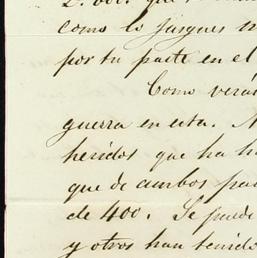 como lo juzgues
por tu parte en el
Como verá
guerra en esta.
heridos que ha h
que de ambos pa
de 400. Se puede
y otros han tenido